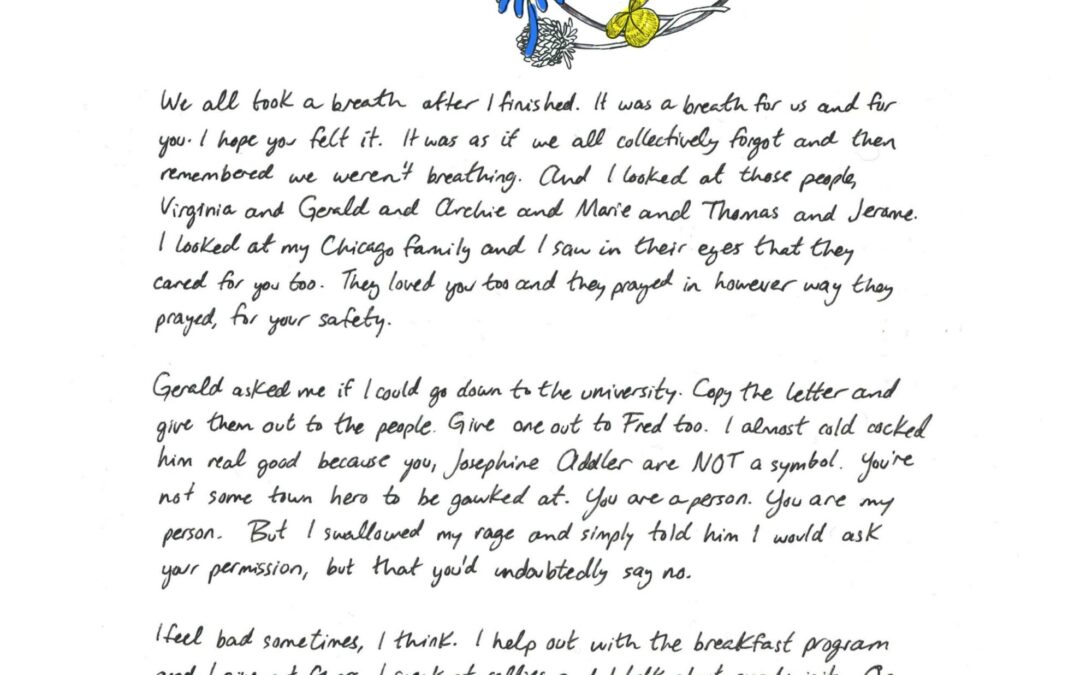 We all took a breath after I finished. It was a breath for us and for
you. I hope you felt it. It was as if we all collectively forgot and then
remembered we weren't breathing. And I looked at those people,
Virginia and Gerald and Archie and Marie and Thomas and Jerome.
I looked at my Chicago family and I saw in their eyes that they
cared for you too. They loved you too and they prayed in however way they
prayed, for your safety.
Gerald asked me if I could go down to the university. Copy the letter and
give them out to the people. Give one out to Fred too. I almost cold cocked
him real good because you, Josephine Addler are NOT a symbol. You're
not some town hero to be gawked at. You are a person. You are my
person. But I swallowed my rage and simply told him I would ask
your permission, but that you'd undoubtedly say no.
I feel bad sometimes, I think. I help out with the breakfast program